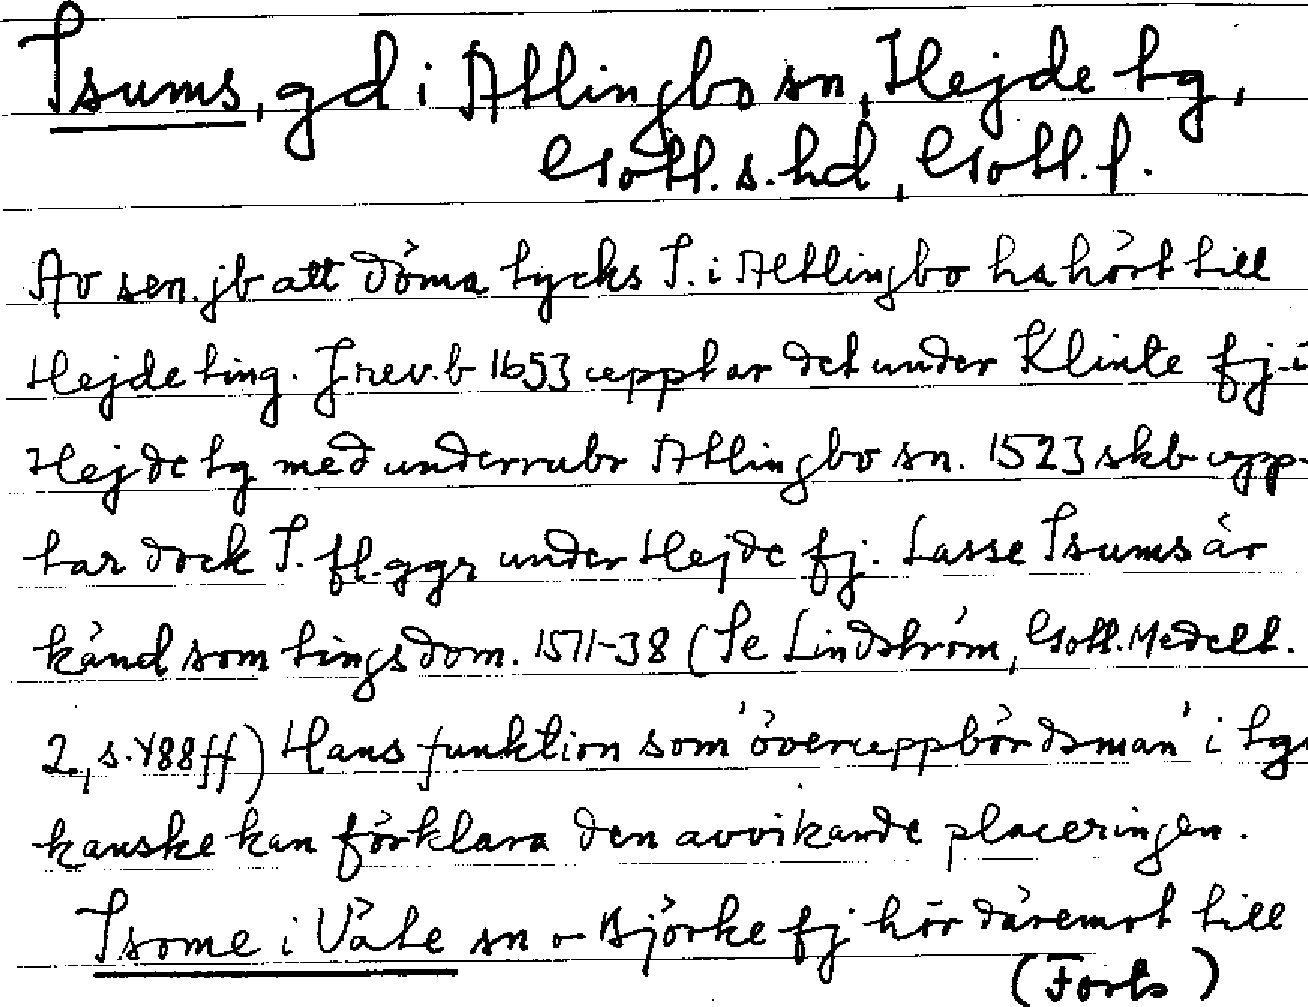 Isums, gd i Atlingbo sn, Hejde tg,
Gotl. s. hd, Gotl. l.
Av sen. jb att döma tycks I. i Atlingbo ha hört till
Hejde ting. I rev.b 1653 upptar det under Klinte fj. i
Hejde tg med underrubr Atlingbo sn. 1523 skb upp-
tar dock I. fl. ggr under Hejde fj. Lasse Isums är
känd som tingsdom. 1511-38 (Se Lindström, Gotl. Medelt.
2, s. 488 ff) Hans funktion som 'överuppbördsman' i tg
kanske kan förklara den avvikande placeringen.
Isome i Väte sn o Björke fj hör däremot till
(Forts)